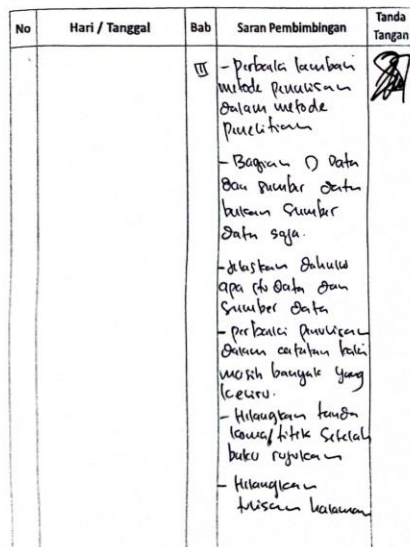 No
Hari / Tanggal
Bab
Saran Pembimbingan
Tanda
Tangan
III
- perbaiki kembali
metode penulisan
dalam metode
penelitian
- Bagian D Data
dan sumber data
bukan sumber
data saja.
- jelaskan dahulu
apa itu data dan
sumber data
- perbaiki penulisan
dalam catatan kaki
masih banyak yang
keliru.
- Hilangkan tanda
koma/titik setelah
buku rujukan
- Hilangkan
tulisan halaman